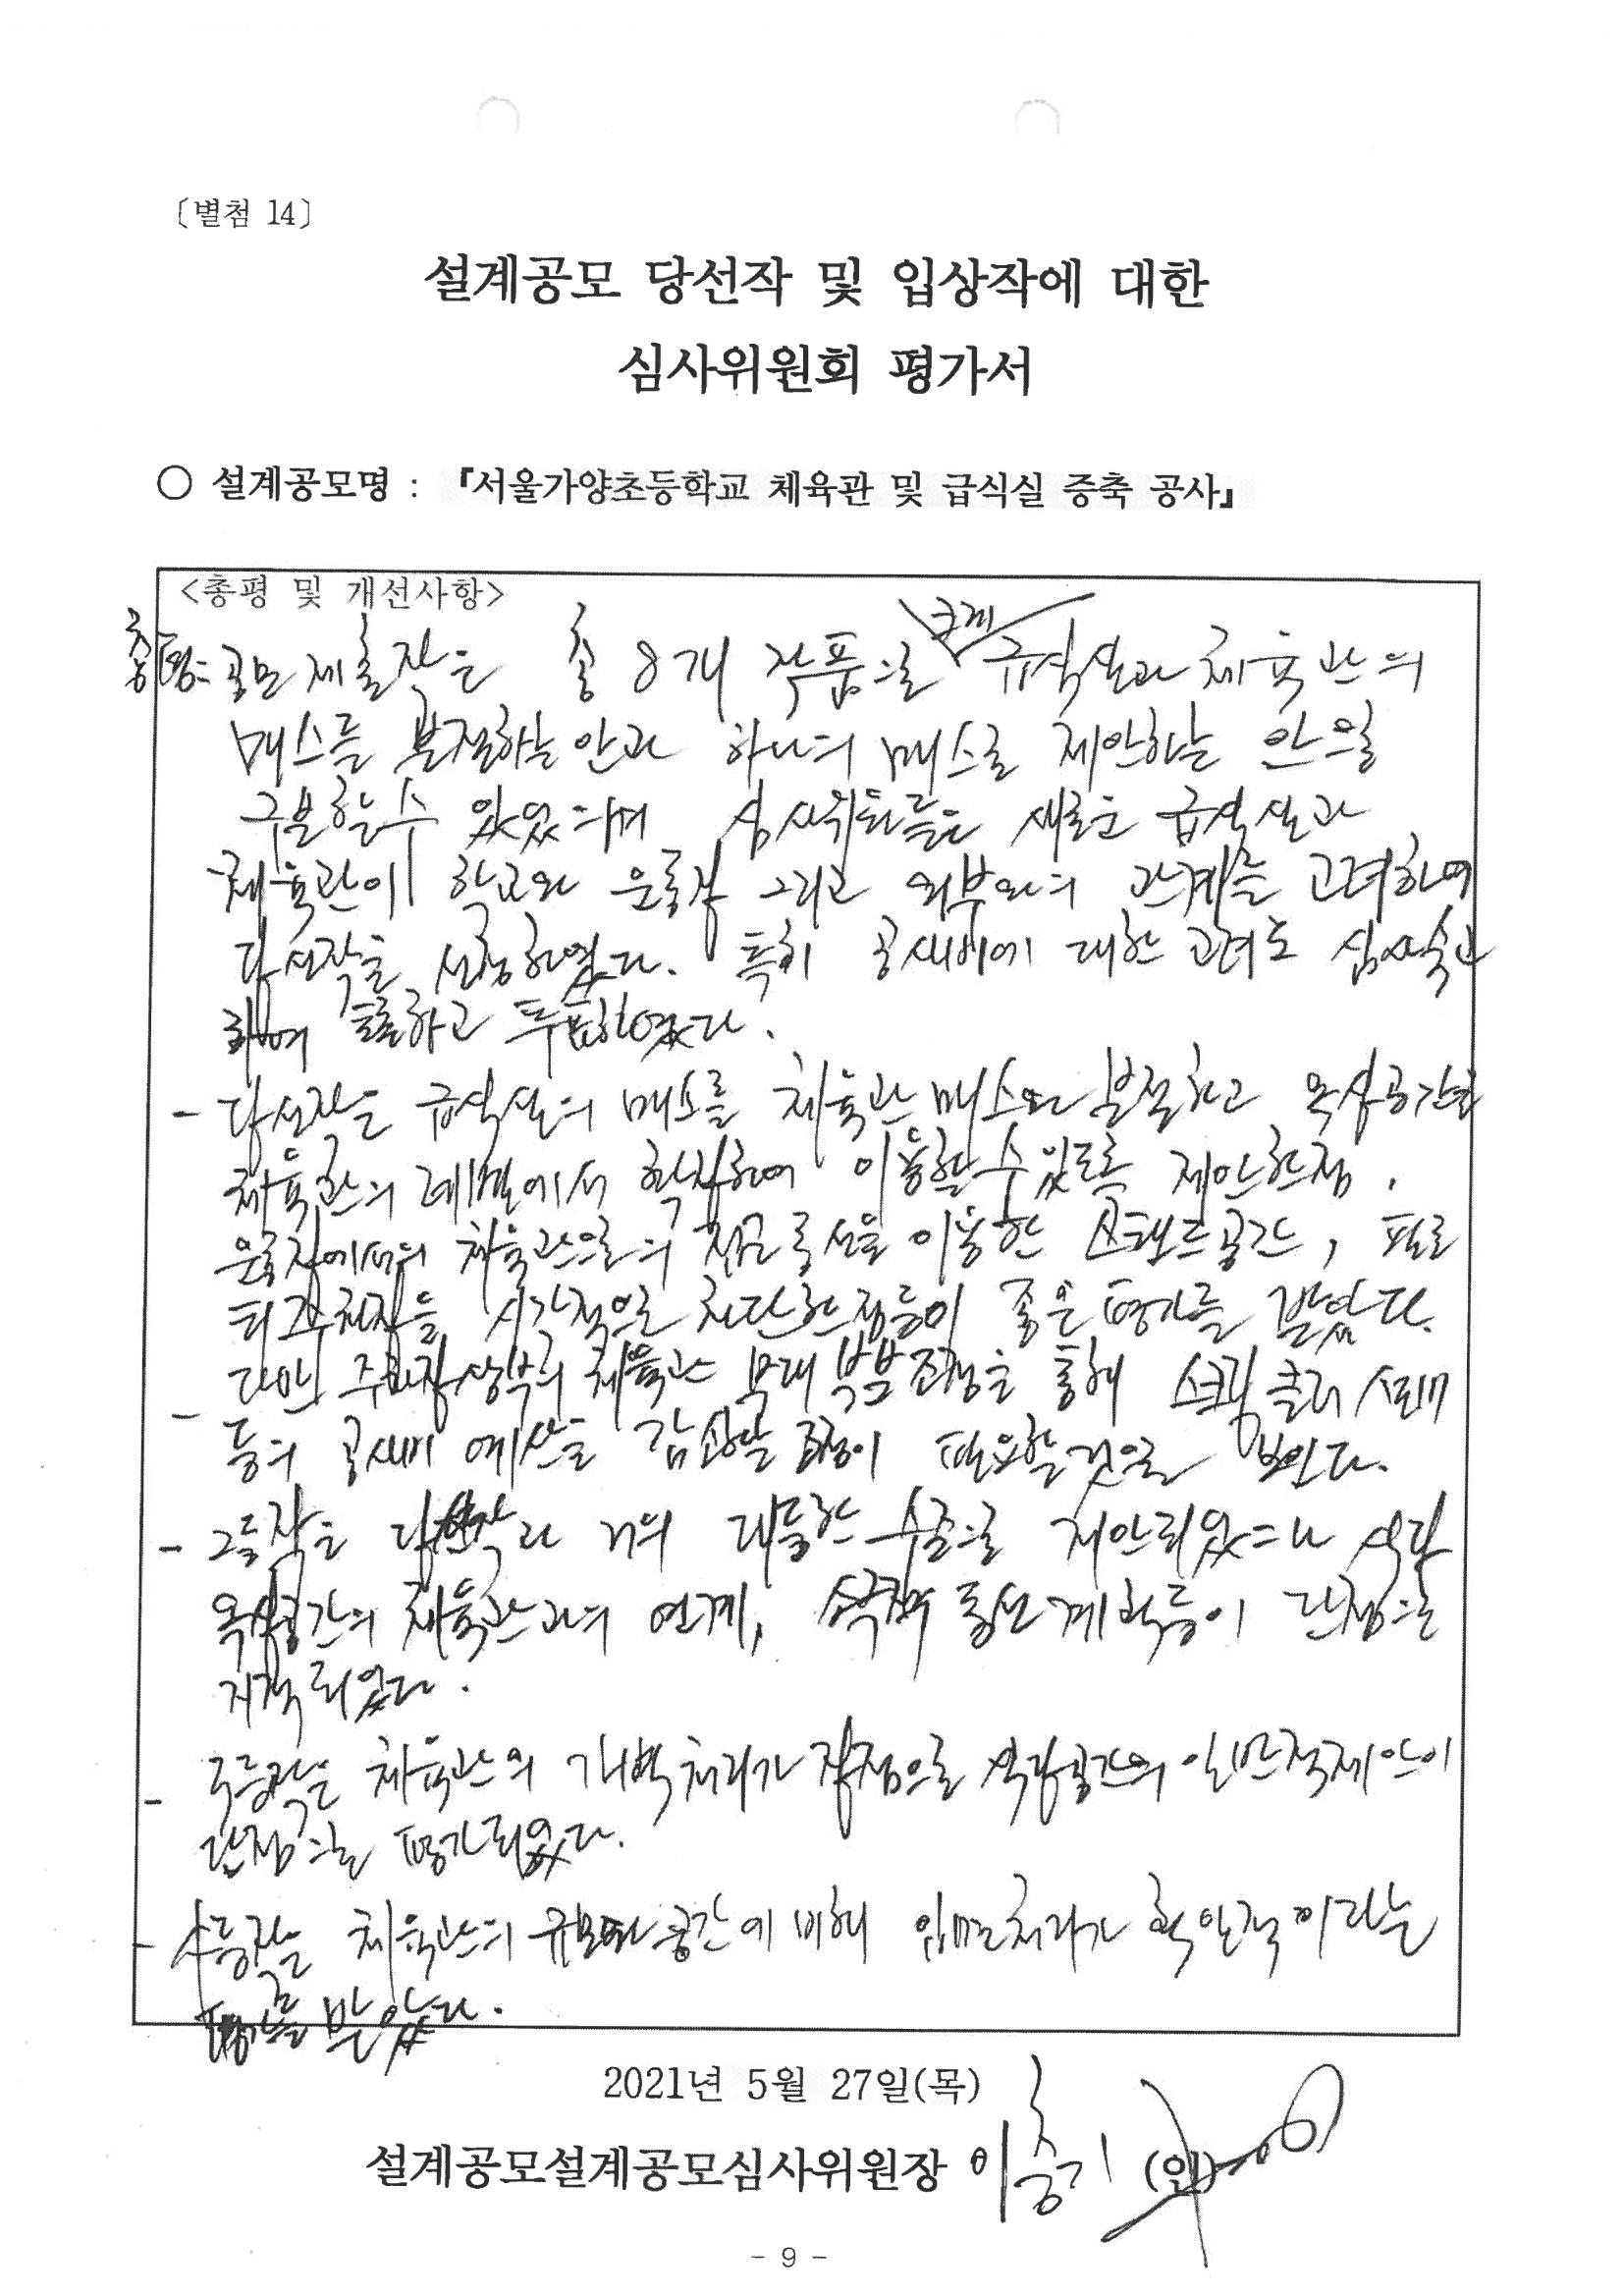 〔별첨 14〕
설계공모 당선작 및 입상작에 대한
심사위원회 평가서
○ 설계공모명 : 『서울가양초등학교 체육관 및 급식실 증축 공사』
<총평 및 개선사항>
크게
총평: 공모 제출작은 총 8개 작품을 급식실과 체육관의
매스를 분절하는 안과 하나의 매스로 제안하는 안으로
구분할 수 있었으며 심사위원들은 새로운 급식실과
체육관이 학교와 운동장 그리고 외부와의 관계를 고려하여
당선작을 선정하였다. 특히 공사비에 대한 고려도 심사숙고
하여 토론하고 투표하였다.
- 당선작은 급식실의 매스를 체육관 매스와 분절하고 옥상공간을
체육관의 레벨에서 확장하여 이용할 수 있도록 제안한 점,
운동장에서의 체육관으로의 접근 동선을 이용한 스탠드 공간, 필로
티 주차장을 시각적으로 차단한 점 등이 좋은 평가를 받았다.
- 다만 주차장 상부의 체육관 무대 부분 조정을 통해 스프링클러 시스템
등의 공사비 예산을 감소할 조정이 필요할 것으로 보인다.
- 2등작은 당선작과 거의 대등한 수준으로 제안되었으나 식당
옥상공간의 체육관과의 연계, 동선계획 등이 단점으로
지적되었다.
- 3등작은 체육관의 개벽처리가 장점으로 식당공간의 일반적 제안이
단점으로 평가되었다.
- 4등작은 체육관의 공간에 비해 입면처리가 획일적이라는
평가를 받았다.
2021년 5월 27일(목)
설계공모설계공모심사위원장 이충기 (인)
- 9 -